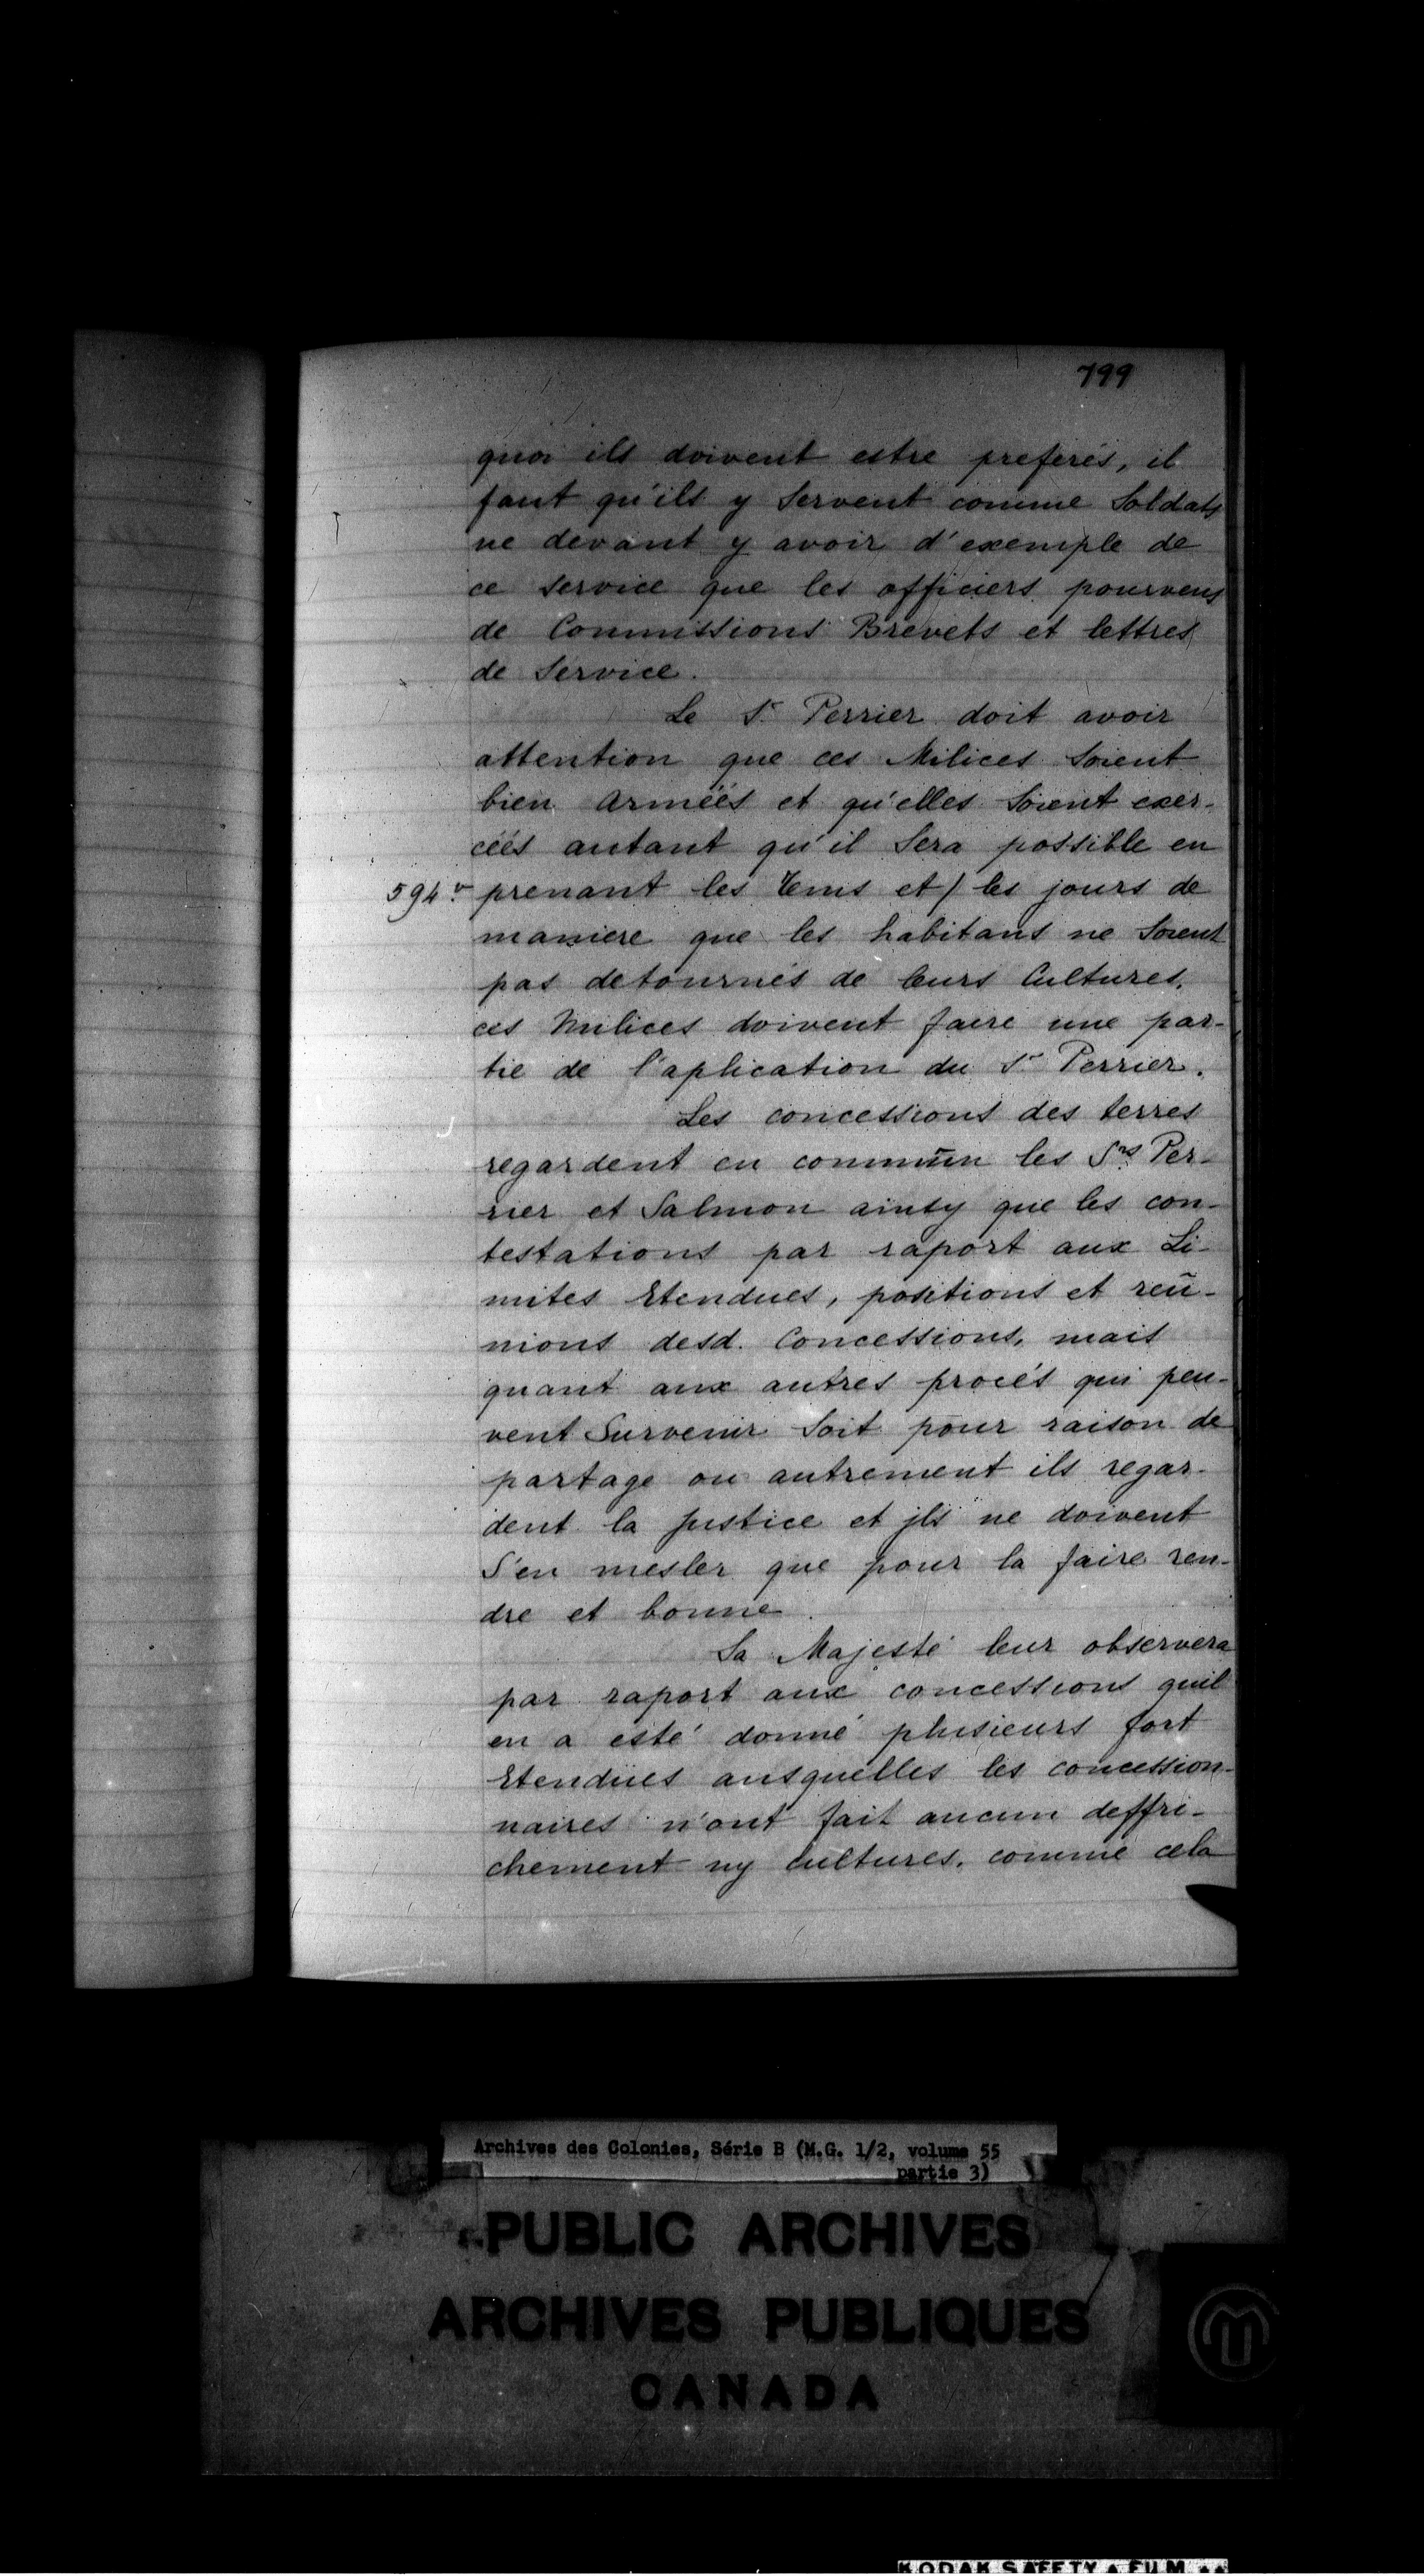 799
quoi ils doivent estre preferés, il
faut qu'ils y servent comme Soldats
ne devant y avoir d'exemple de
ce service que les officiers pourveus
de Commissions Brevets et lettres
de Service.
Le Sr. Perrier doit avoir
attention que ces Milices soient
bien armées et qu'elles soient exer-
céés autant qu'il sera possible en
594 v. prenant les tems et / les jours de
maniere que les habitans ne soient
pas detournés de leurs Cultures.
ces Milices doivent faire une par-
tie de l'aplication du Sr Perrier.
Les concessions des terres
regardent en commun les Srs. Per-
rier et Salmon ainsy que les con-
testations par raport aux Li-
mites Etendues, positions et reü-
nions desd. Concessions, mais
quant aux autres procés qui peu-
vent Survenir soit pour raison de
partage ou autrement ils regar-
dent la justice et jls ne doivent
S'en mesler que pour la faire ren-
dre et bonne.
Sa Majesté leur observera
par raport aux concessions quil
en a esté donné plusieurs fort
Etendües ausquelles les concession-
naires n'ont fait aucun deffri-
chement ny cultures. comme cela
Archives des Colonies, Série B (M.G. 1/2, volume 55
partie 3)
PUBLIC ARCHIVES
ARCHIVES PUBLIQUES
CANADA
KODAK SAFETY FILM